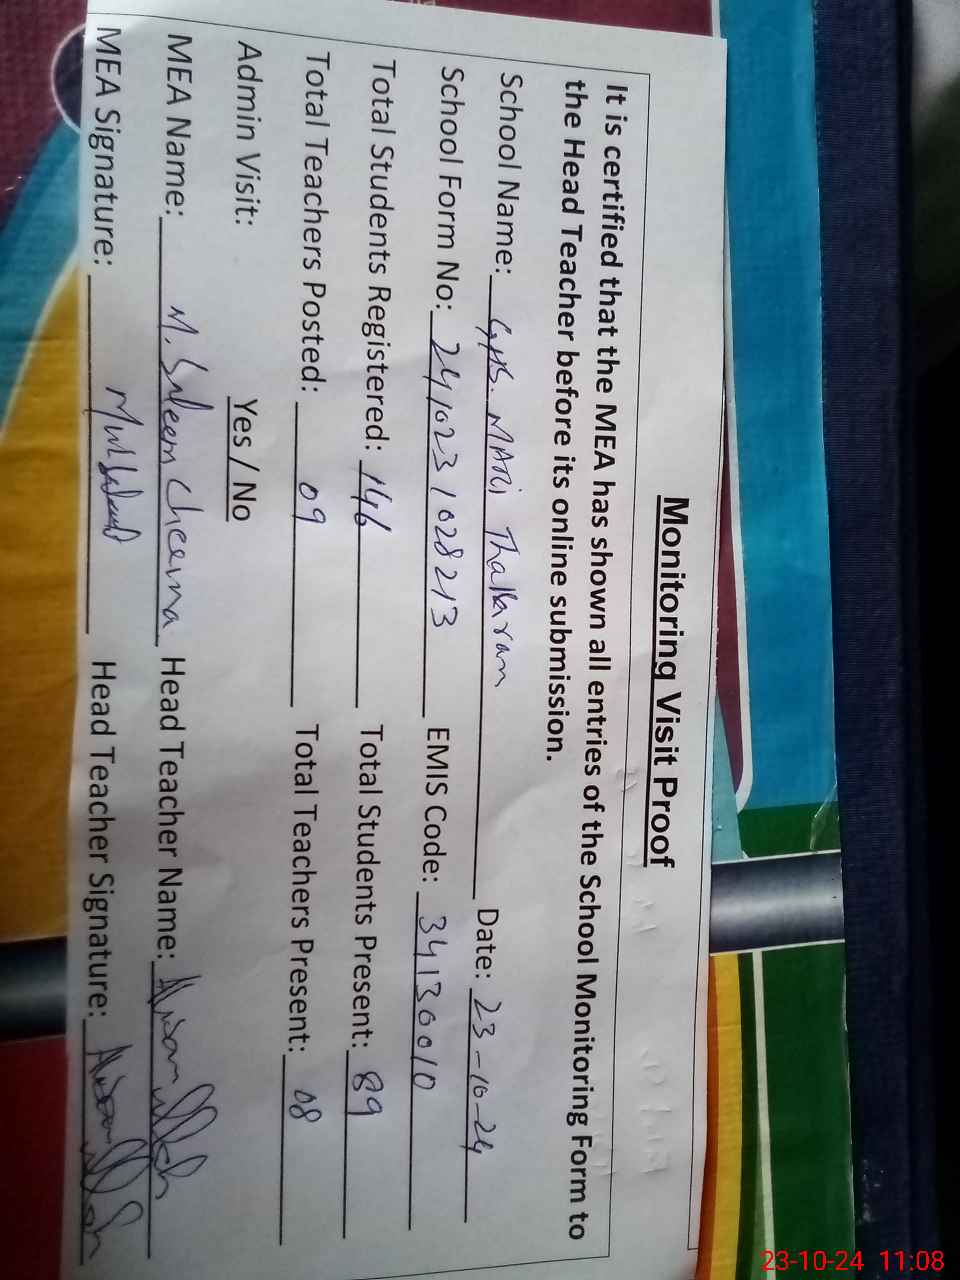 Monitoring Visit Proof
It is certified that the MEA has shown all entries of the School Monitoring Form to
the Head Teacher before its online submission.
School Name: GHS. MARI Thakran Date: 23-10-24
School Form No: 241023 1028213 EMIS Code: 34130010
Total Students Registered: 146 Total Students Present: 89
Total Teachers Posted: 09 Total Teachers Present: 08
Admin Visit: Yes / No
MEA Name: M. Saleem Cheema Head Teacher Name:
MEA Signature: Head Teacher Signature:
23-10-24 11:08